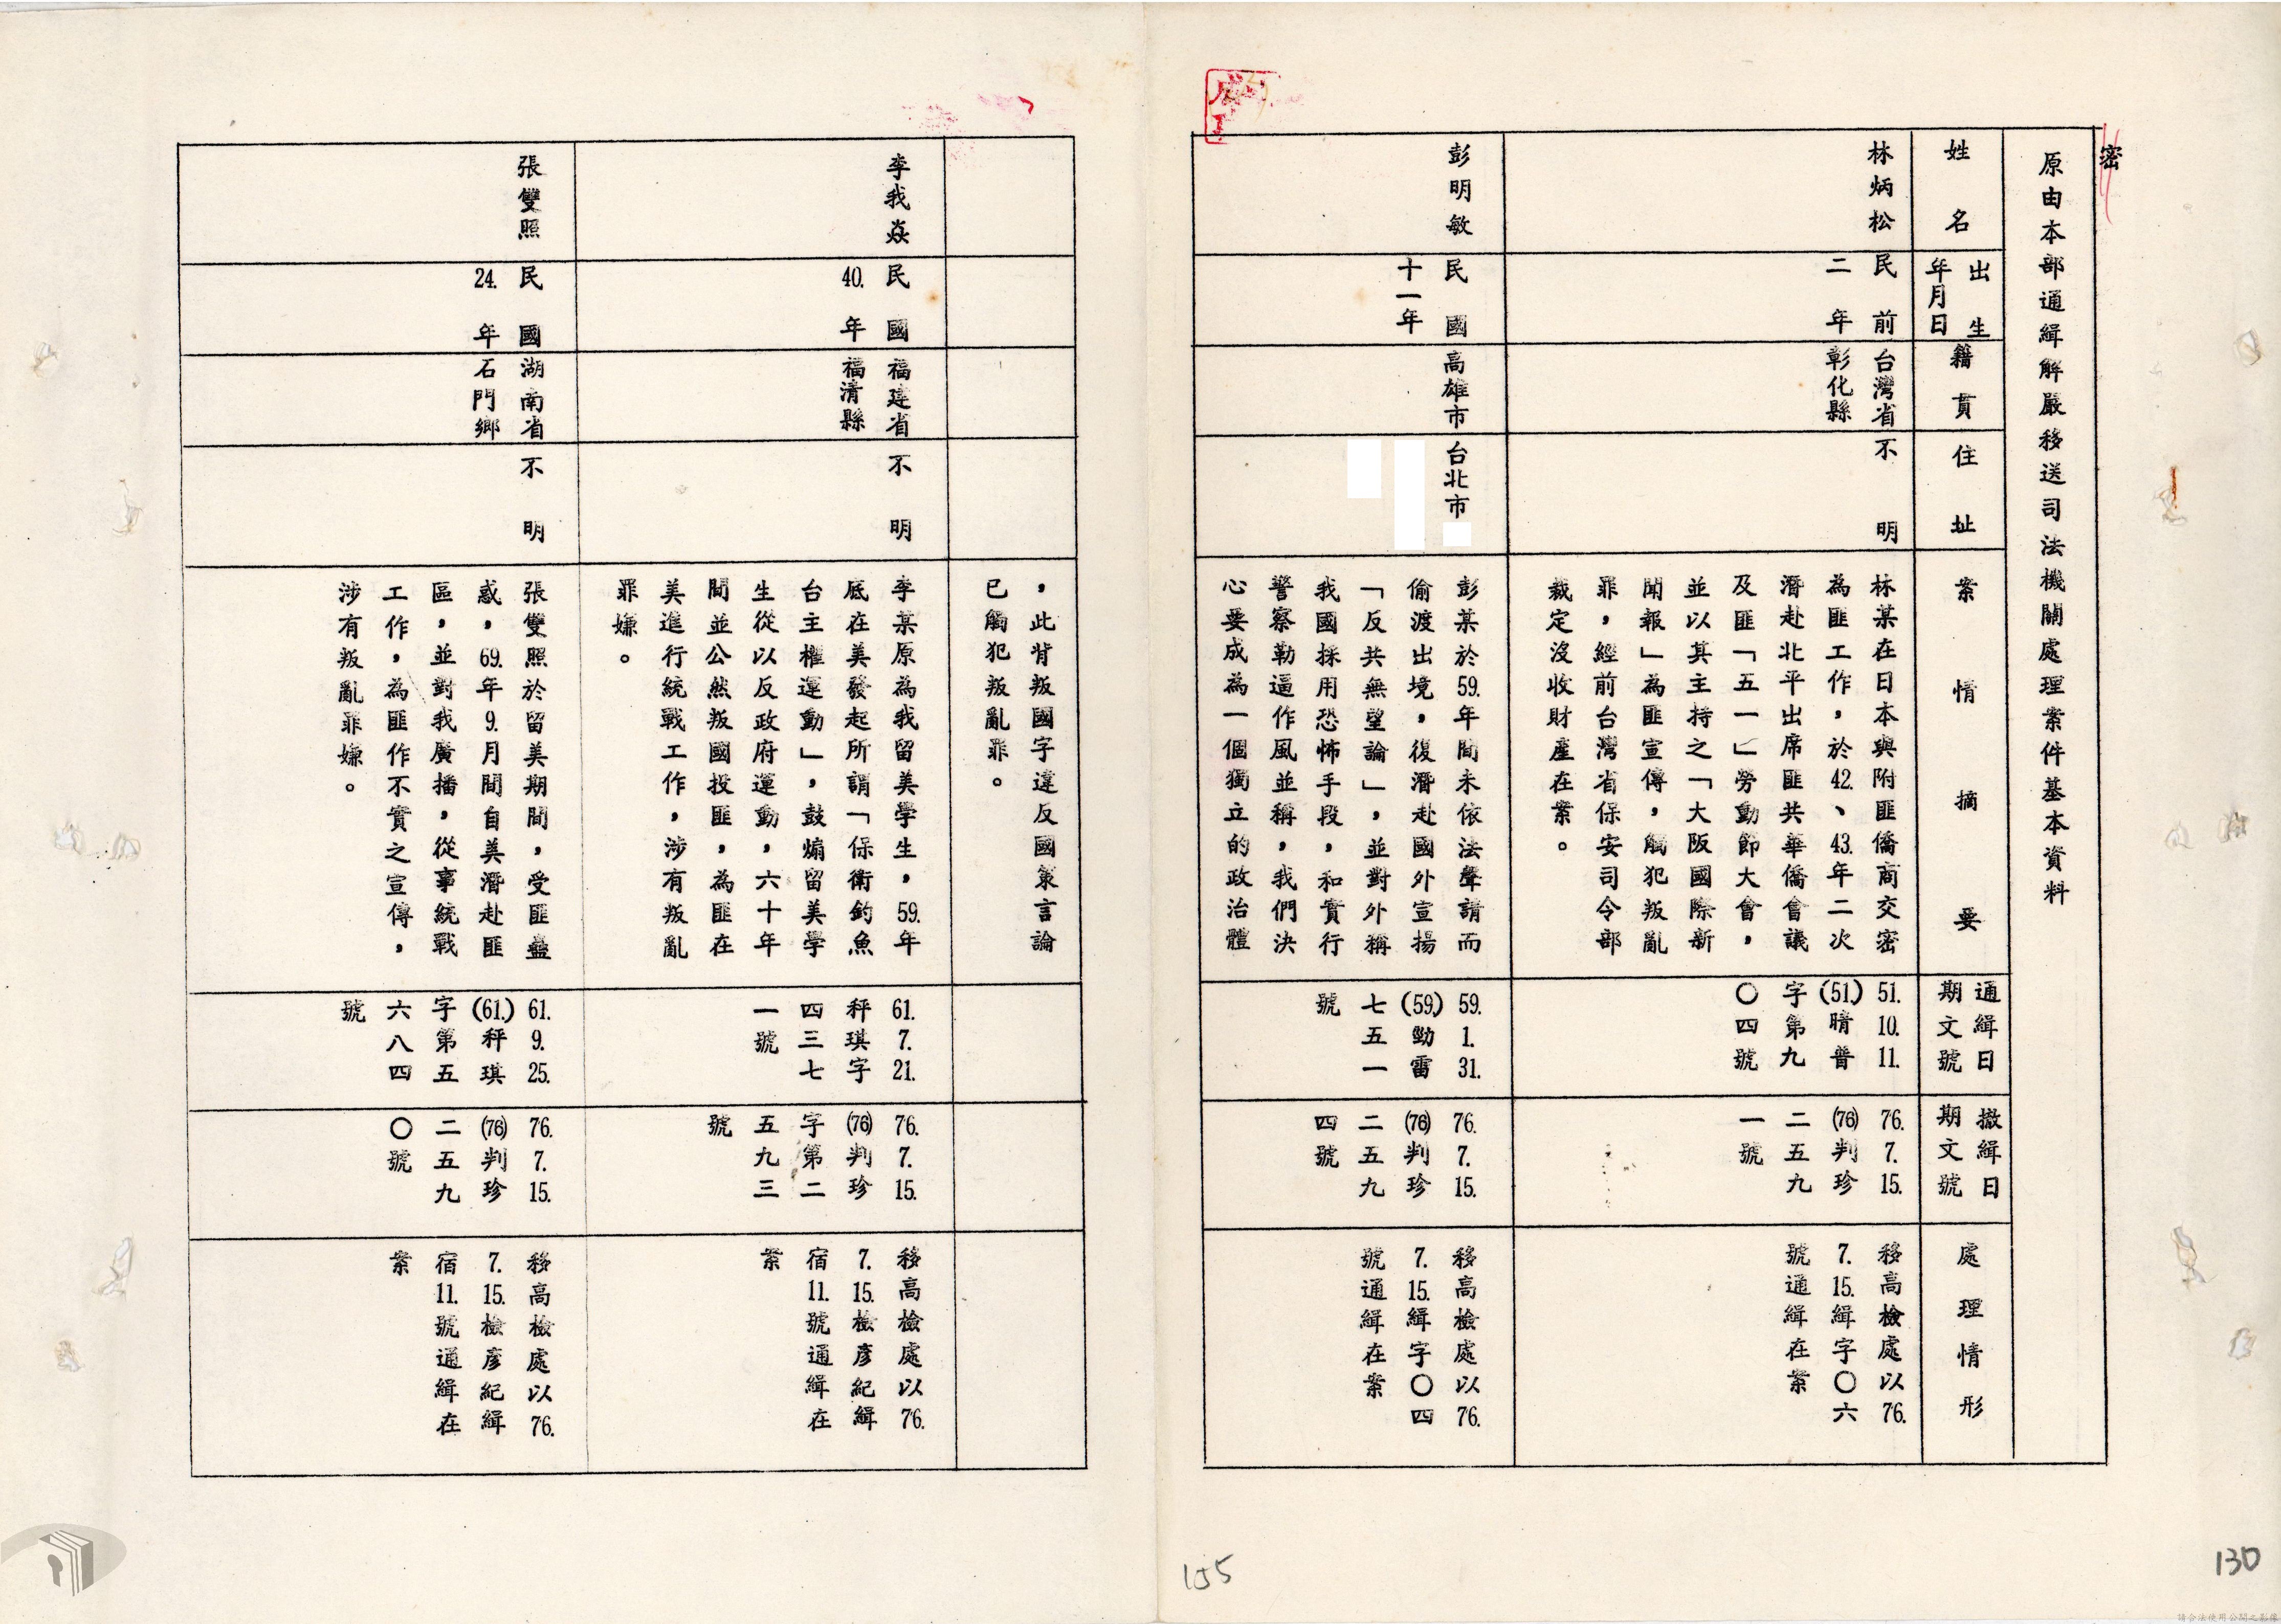 密
原由本部通緝解嚴移送司法機關處理案件基本資料
姓名
出生
年月日
籍貫
住址
案情摘要
通緝日
期文號
撤緝日
期文號
處理情形
林炳松
民前
二年
台灣省
彰化縣
不明
林某在日本與附匪僑商交密
為匪工作，於42.、43.年二次
潛赴北平出席匪共華僑會議
及匪「五一」勞動節大會，
並以其主持之「大阪國際新
聞報」為匪宣傳，觸犯叛亂
罪，經前台灣省保安司令部
裁定沒收財產在案。
51.10.11.
(51.)晴普
字第九
〇四號
76.7.15.
(76)判珍
二五九
一號
移高檢處以76.
7.15.緝字〇六
號通緝在案
彭明敏
民國
十一年
高雄市
台北市
彭某於59.年間未依法聲請而
偷渡出境，復潛赴國外宣揚
「反共無望論」，並對外稱
我國採用恐怖手段，和實行
警察勒逼作風並稱，我們決
心要成為一個獨立的政治體
59.1.31.
(59.)勁雷
七五一
號
76.7.15.
(76)判珍
二五九
四號
移高檢處以76.
7.15.緝字〇四
號通緝在案
，此背叛國字違反國策言論
已觸犯叛亂罪。
李我焱
民國
40.年
福建省
福清縣
不明
李某原為我留美學生，59.年
底在美發起所謂「保衛釣魚
台主權運動」，鼓煽留美學
生從以反政府運動，六十年
間並公然叛國投匪，為匪在
美進行統戰工作，涉有叛亂
罪嫌。
61.7.21.
秤琪字
四三七
一號
76.7.15.
(76)判珍
字第二
五九三
號
移高檢處以76.
7.15.檢彥紀緝
宿11.號通緝在
案
張雙照
民國
24.年
湖南省
石門鄉
不明
張雙照於留美期間，受匪蠱
惑，69.年9.月間自美潛赴匪
區，並對我廣播，從事統戰
工作，為匪作不實之宣傳，
涉有叛亂罪嫌。
61.9.25.
(61.)秤琪
字第五
六八四
號
76.7.15.
(76)判珍
二五九
〇號
移高檢處以76.
7.15.檢彥紀緝
宿11.號通緝在
案
155
130
請合法使用公開之影像